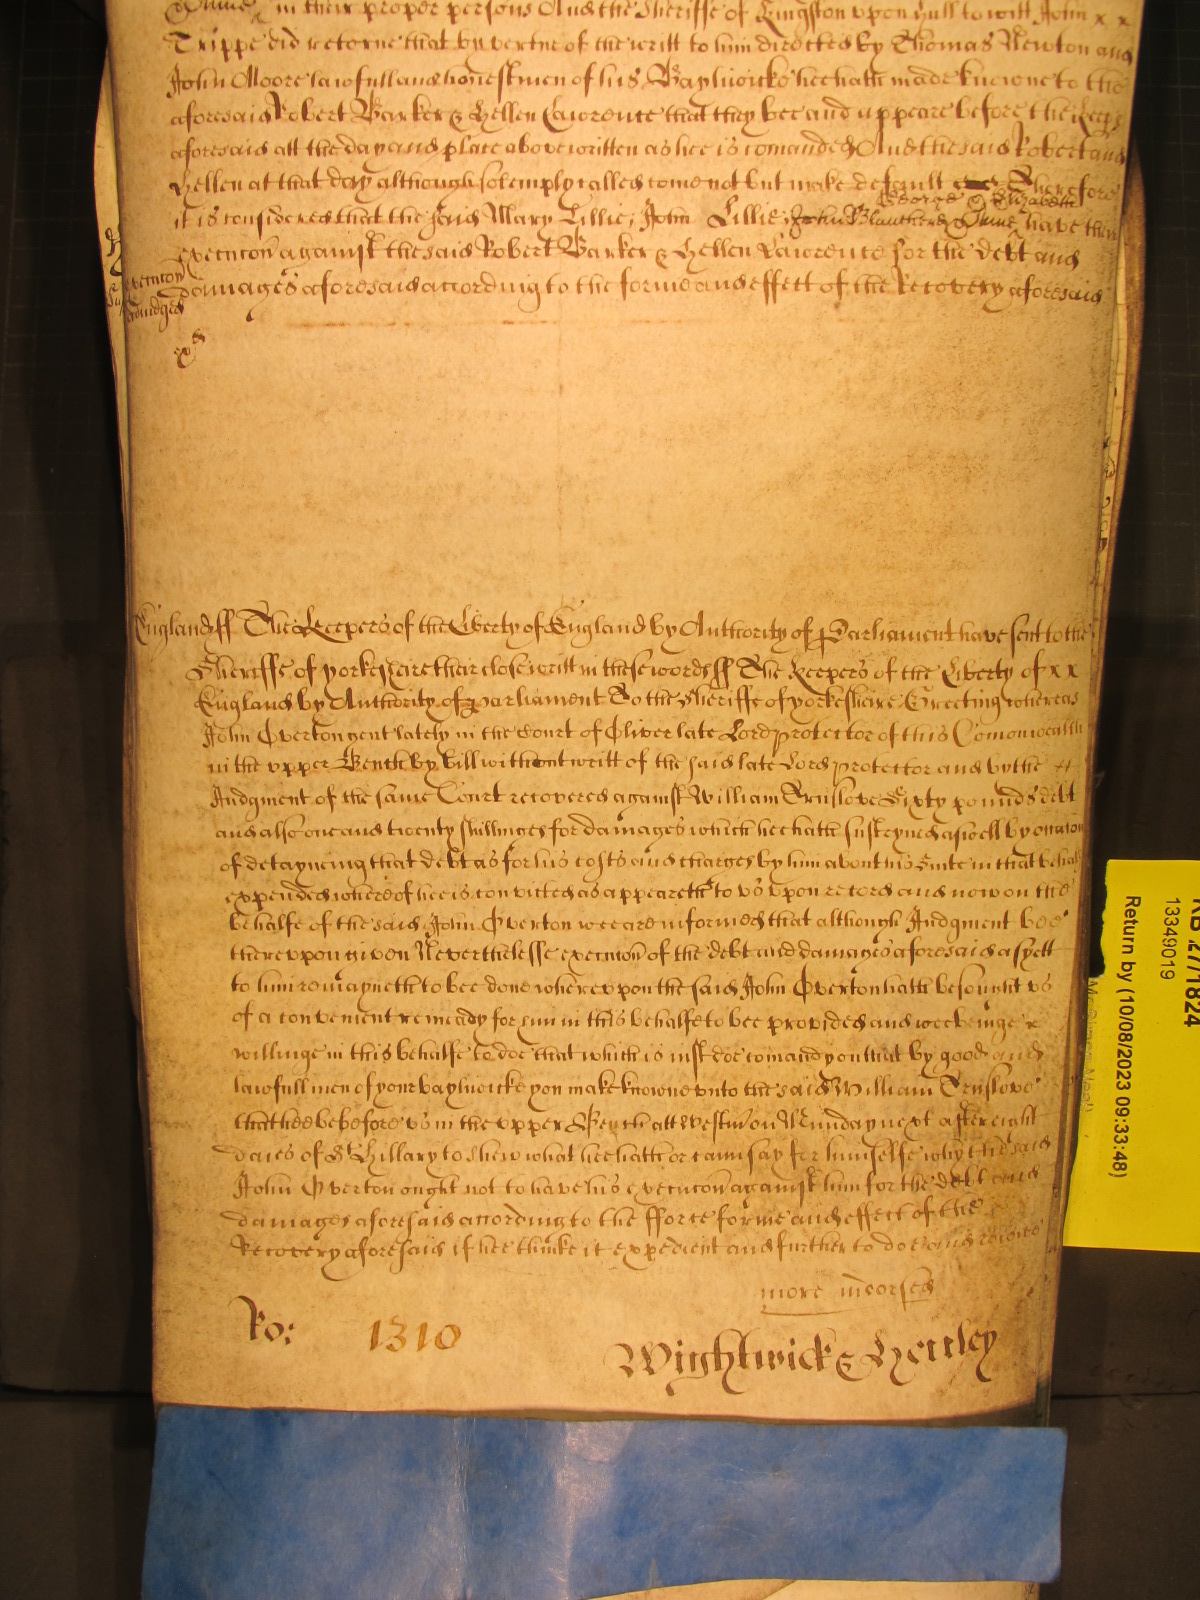 Anne in their proper persons And the Sheriffe of Kingston upon Hull to witt John x x
Trippe did retorne that by vertue of the writt to him directed by Thomas Newton and
John Moore lawfull and honest men of his Baylwicke hee hath made knowne to the
aforesaid Robert Barker & Hellen Lawrence that they bee and appeare before the Keeps
aforesaid att the day and place above written as hee is comanded And the said Robert and
Hellen at that day although solemply called come not but make default Therefore
George & Elizabeth
it is considered that the said Mary Lillie, John Lillie, John Blancherd & Anne have their
execucon against the said Robert Barker & Hellen Lawrence for the debt and
damages aforesaid according to the forme and effect of the Recovery aforesaid
execucon
adiudged
exd
England ss The Keepers of the Liberty of England by Authority of Parliament have sent to the
Sheriffe of yorkeshire their close writt in these words ss The Keepers of the Liberty of x x
England by Authority of Parliament To the Sheriffe of yorkeshire Greeting whereas
John Overton gent lately in the Court of Oliver late Lord protector of this Comonwealth
in the upper Bench by bill without writt of the said late Lord protector and by the
Judgment of the same Court recovered against William Truslove Sixty pounds debt
and also one and twenty shillinges for damages which hee hath susteyned aswell by occasion
of detayneing that debt as for his costs and charges by him about his Suite in that behalf
expended whereof hee is convicted as appeareth to us upon record and now on the
behalfe of the said John Overton wee are informed that although Judgment bee
thereupon given Neverthelesse execucon of the debt and damages aforesaid as yett
to him remayneth to bee done whereupon the said John Overton hath besought us
of a convenient remeady for him in this behalfe to bee provided and wee beinge x
willinge in this behalfe to doe that which is iust doe comand you that by good and
lawfull men of your baylwicke you make knowne unto the said William Truslove
that hee be before us in the upper Bench att Westm on Munday next after eight
daies of St Hillary to shew what hee hath or can say for himselfe why the said
John Overton ought not to have his execucon against him for the debt and
damages aforesaid according to the fforce forme and effect of the
Recovery aforesaid if hee thinke it expedient and further to doe and receive
more indorsed
Ro: 1310
Wightwick & Hettley
KB 27/1824
13349019
Return by (10/08/2023 09:33:48)